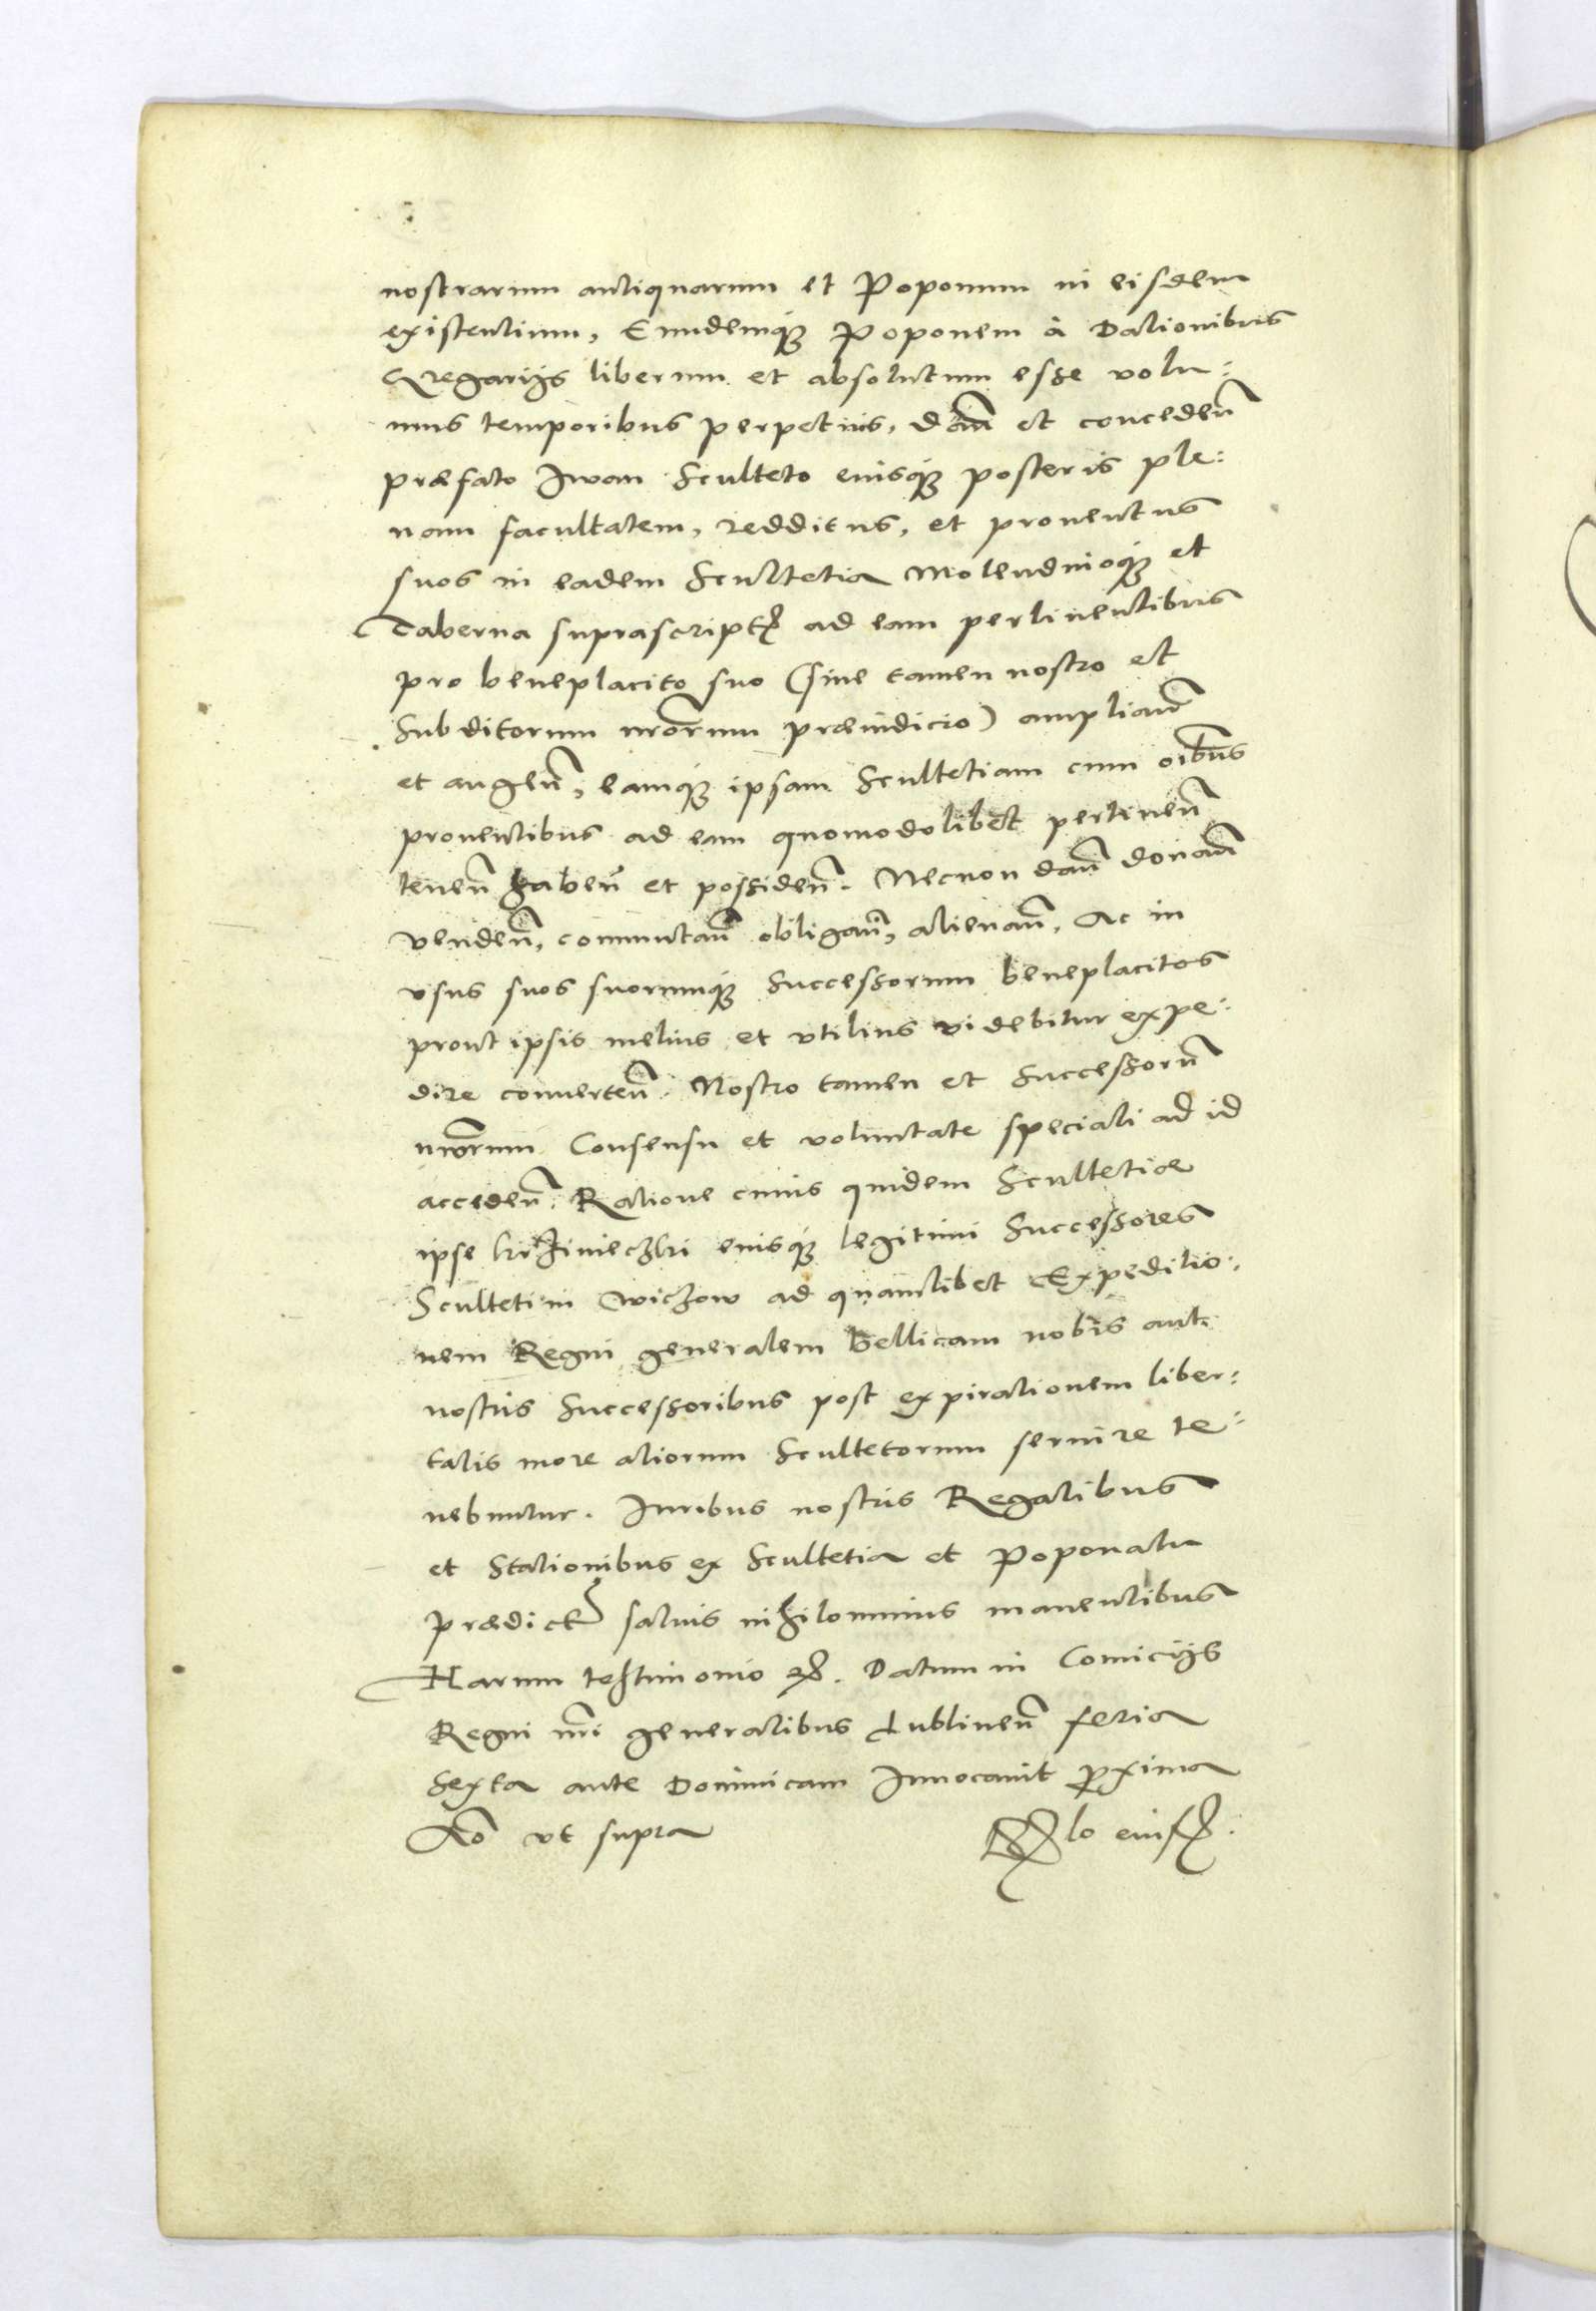 nostrarum antiquarum et Poponum in eisdem
existentium, Eundemq́ꝫ Poponem à Dationibus
Gregarijs liberum et absolutum esse volu:
mus temporibus perpetuis, dan̄ et conceden̄
præfato Iwan Sculteto eiusq́ꝫ posteris ple:
nam facultatem, redditus, et prouentus
suos in eadem Scultetia Molendinoq́ꝫ et
Taberna suprascript̄ ad eam pertinentibus
pro beneplacito suo (sine tamen nostro et
Subditorum nr̄orum præiudicio) amplian̄
et augen̄, eamq́ꝫ ipsam Scultetiam cum oībus
prouentibus ad eam quomodolibet pertinen̄
tenen̄ haben̄ et possiden̄. Necnon dan̄ donan̄
venden̄, commutan̄ obligan̄, alienan̄, Ac in
vsus suos suorumq́ꝫ Successorum beneplacitos
prout ipsis melius et vtilius videbitur expe:
dire conuerten̄. Nostro tamen et Successorū
nr̄orum Consensu et voluntate speciali ad id
acceden̄. Ratione cuius quidem Scultetiæ
ipse eiusq́ꝫ legitimi Successores
Sculteti in Wiczow ad quamlibet Expeditio:
nem Regni generalem bellicam nobis aut
nostris Successoribus post expirationem liber:
tatis more aliorum Scultetorum seruire te:
nebuntur. Iuribus nostris Regalibus
et Stationibus ex Scultetia et Poponatu
prædict̄ saluis nihilominus manentibus
Harum testimonio ꝛc. Datum in Comicijs
Regni nr̄i generalibus Lublinen̄ feria
Sexta ante Dominicam Inuocauit proxima
Aō vt supra Rlo eiusd̄.